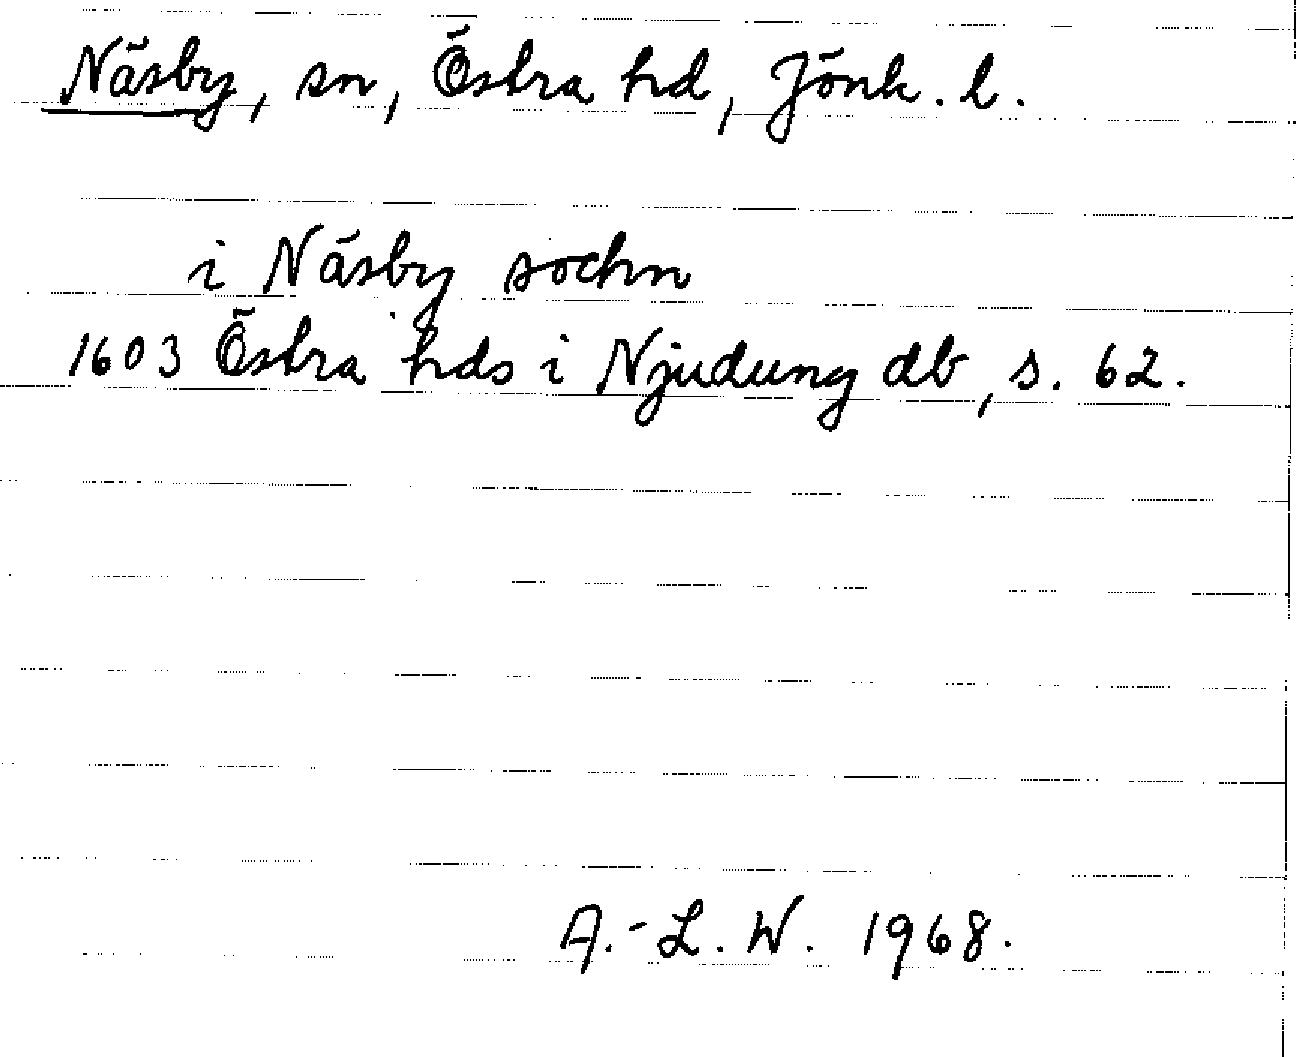 Näsby, sn, Östra hd, Jönk. l.
i Näsby sochn
1603 Östra hds i Njudung db, s. 62.
A.-L. W. 1968.